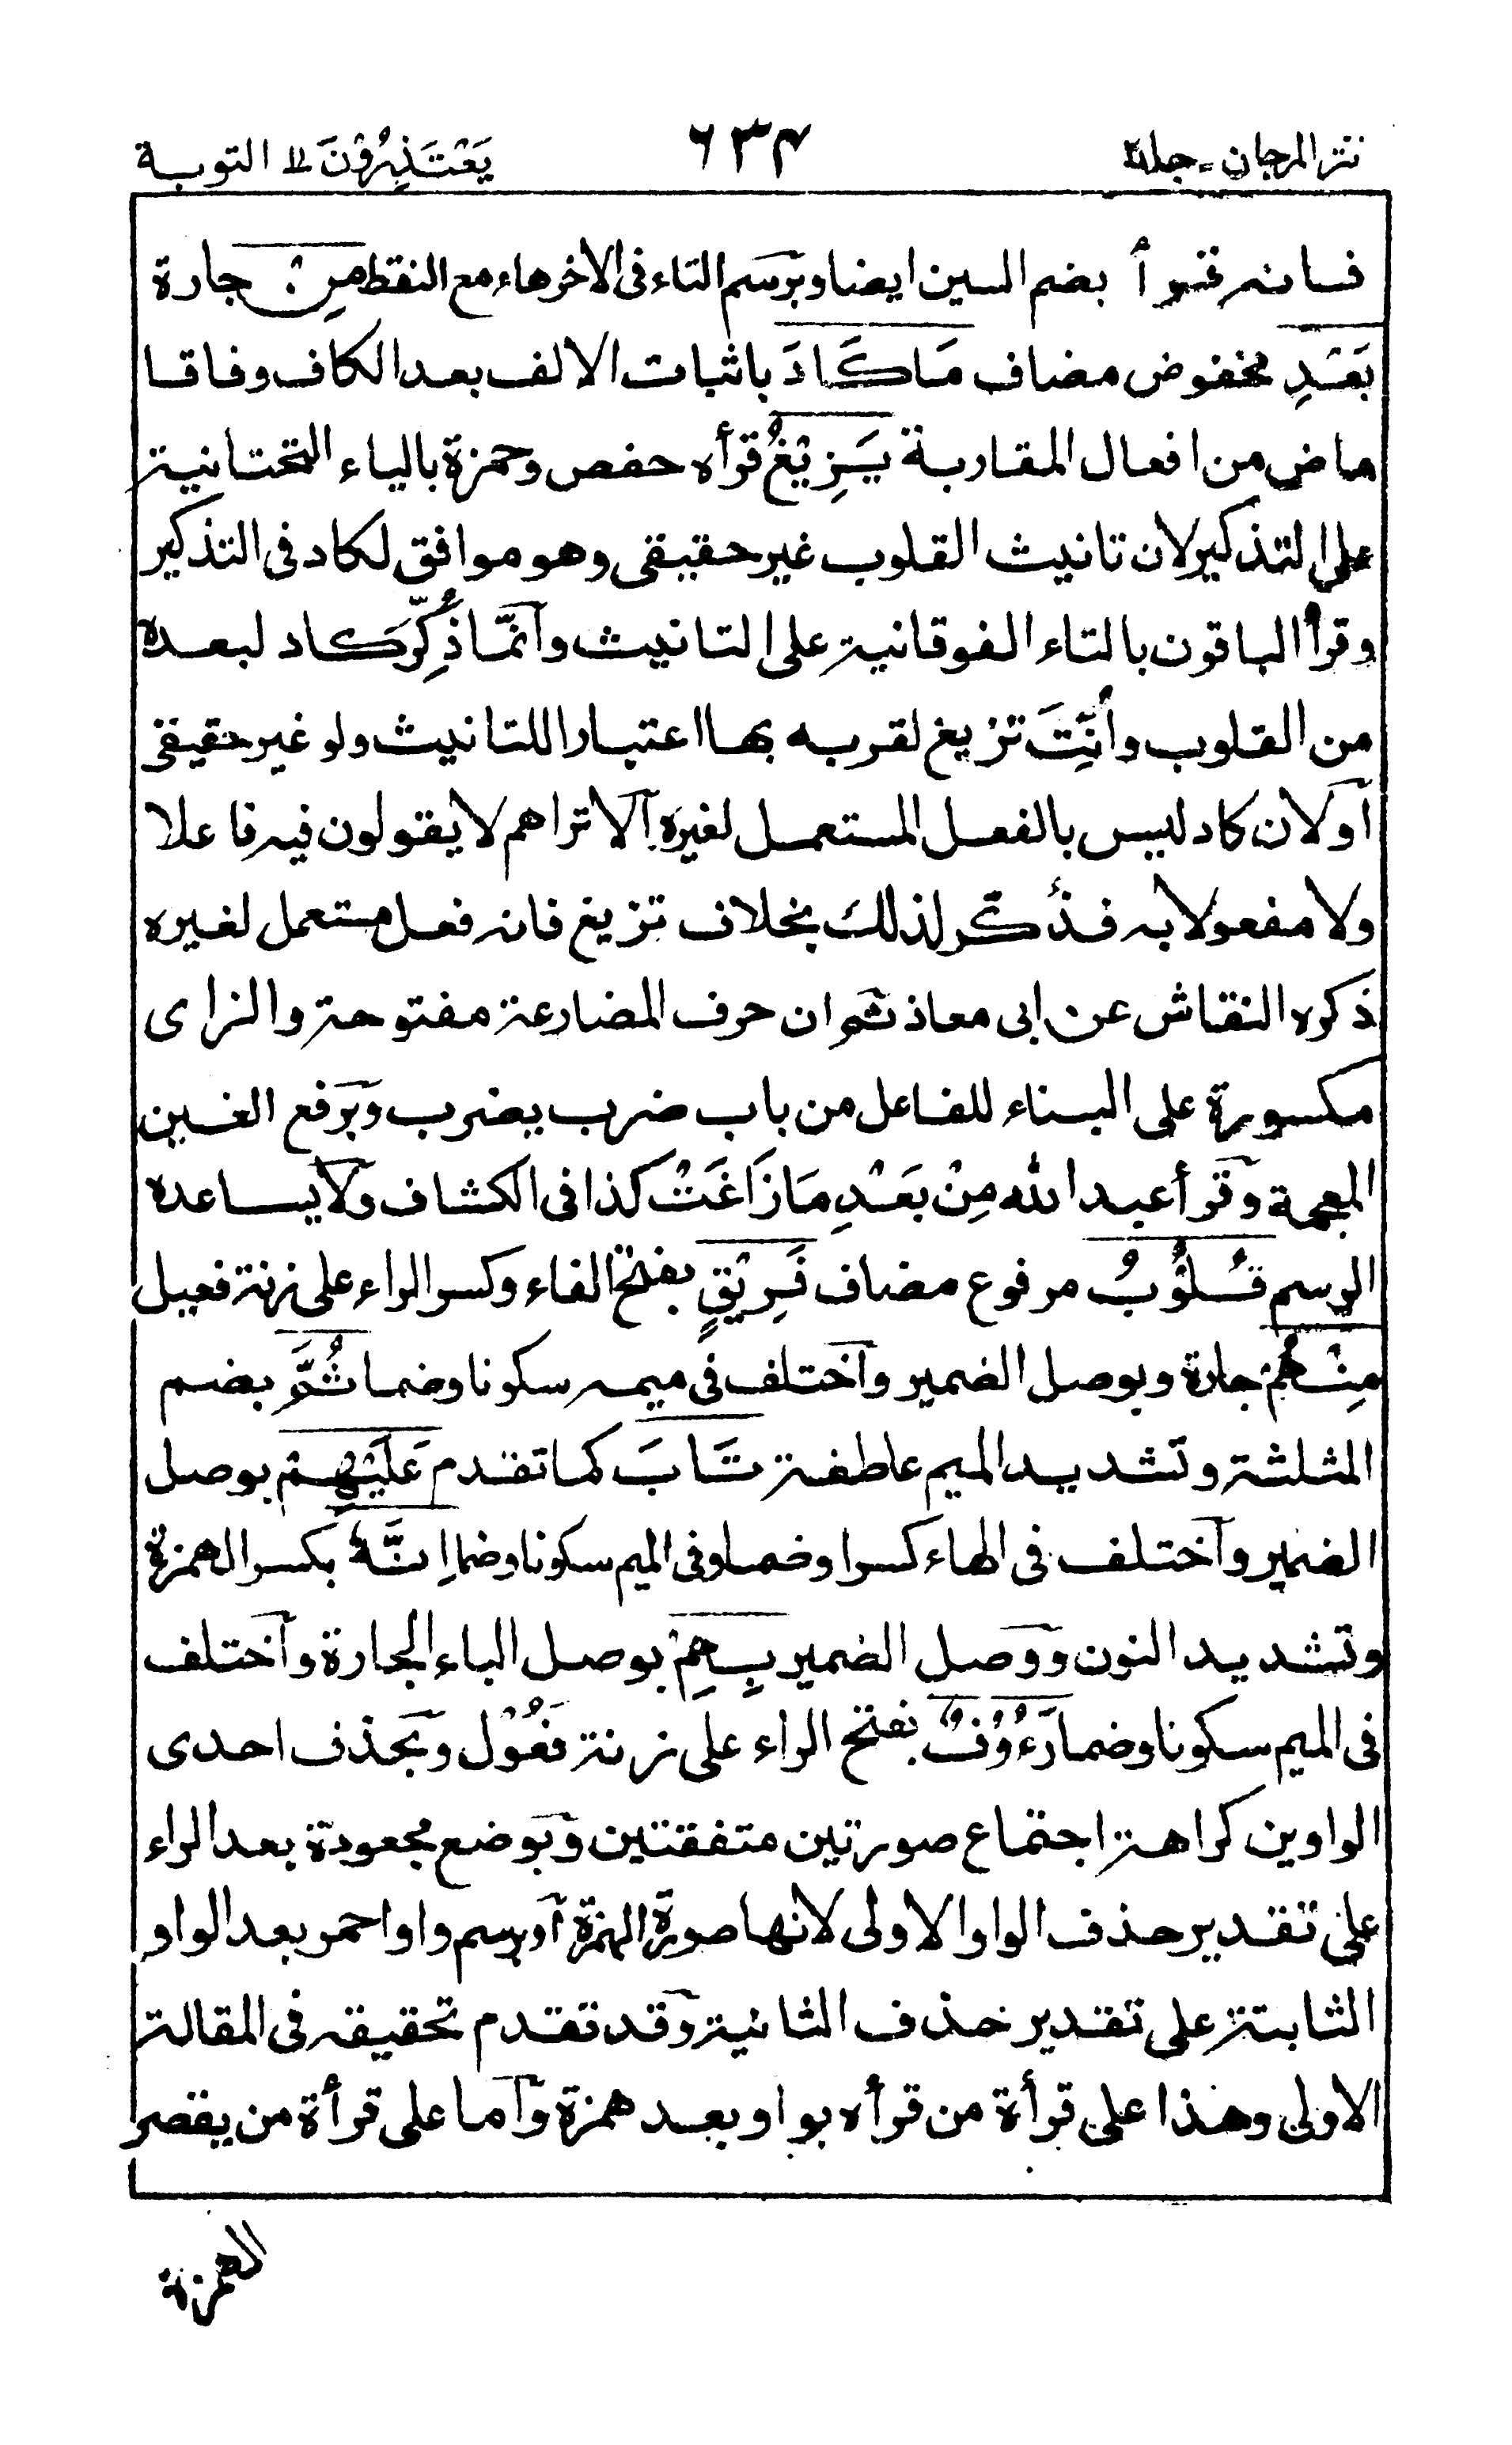 نثر المرجان - جلد ٢
٦٣٤
يَعْتَذِرُوْنَ ١١ التوبة
فانه قرأ بضم السين ايضا وبرسم التاء فى الاخر هاء مع النقط مِنْۢ جارة
بَعْدِ مخفوض مضاف مَا كَادَ باثبات الالف بعد الكاف وفاقا
ماض من افعال المقاربة يَزِيْغُ قرأه حفص وحمزة بالياء التحتانية
على التذكير لان تانيث القلوب غير حقيقى وهو موافق لكاد فى التذكير
وقرأ الباقون بالتاء الفوقانية على التانيث وانّما ذُكِّر كاد لبعده
من القلوب وأُنِّثَ تزيغ لقربه بها اعتبارا للتانيث ولو غير حقيقى
او لان كاد ليس بالفعل المستعمل لغيره الا تراهم لا يقولون فيه فاعلا
ولا مفعولا به فذُكّر لذلك بخلاف تزيغ فانه فعل مستعمل لغيره
ذكره النقاش عن ابى معاذ ثم ان حرف المضارعة مفتوحة والزاى
مكسورة على البناء للفاعل من باب ضرب يضرب وبرفع الغين
المعجمة وقرأ عبد الله مِنْ بَعْدِ مَا زَاغَتْ كذا فى الكشاف ولا يساعده
الرسم قُلُوْبُ مرفوع مضاف فَرِيْقٍ بفتح الفاء وكسر الراء على زنة فعيل
مِنْهُمْ جارة وبوصل الضمير واختلف فى ميمه سكونا وضما ثُمَّ بضم
المثلثة وتشديد الميم عاطفة تَابَ كما تقدم عَلَيْهِمْ بوصل
الضمير واختلف فى الهاء كسرا وضما وفى الميم سكونا وضما اِنَّهٗ بكسر الهمزة
وتشديد النون ووصل الضمير بِهِمْ بوصل الباء الجارة واختلف
فى الميم سكونا وضما رَءُوْفٌ بفتح الراء على زنة فَعُوْل وبحذف احدى
الواوين كراهة اجتماع صورتين متفقتين وبوضع مجعودة بعد الراء
على تقدير حذف الواو الاولى لانها صورة الهمزة او برسم واو احمر بعد الواو
الثابتة على تقدير حذف الثانية وقد تقدم تحقيقه فى المقالة
الاولى وهذا على قرأة من قرأه بواو بعد همزة واما على قرأة من يقصر
الهمزة